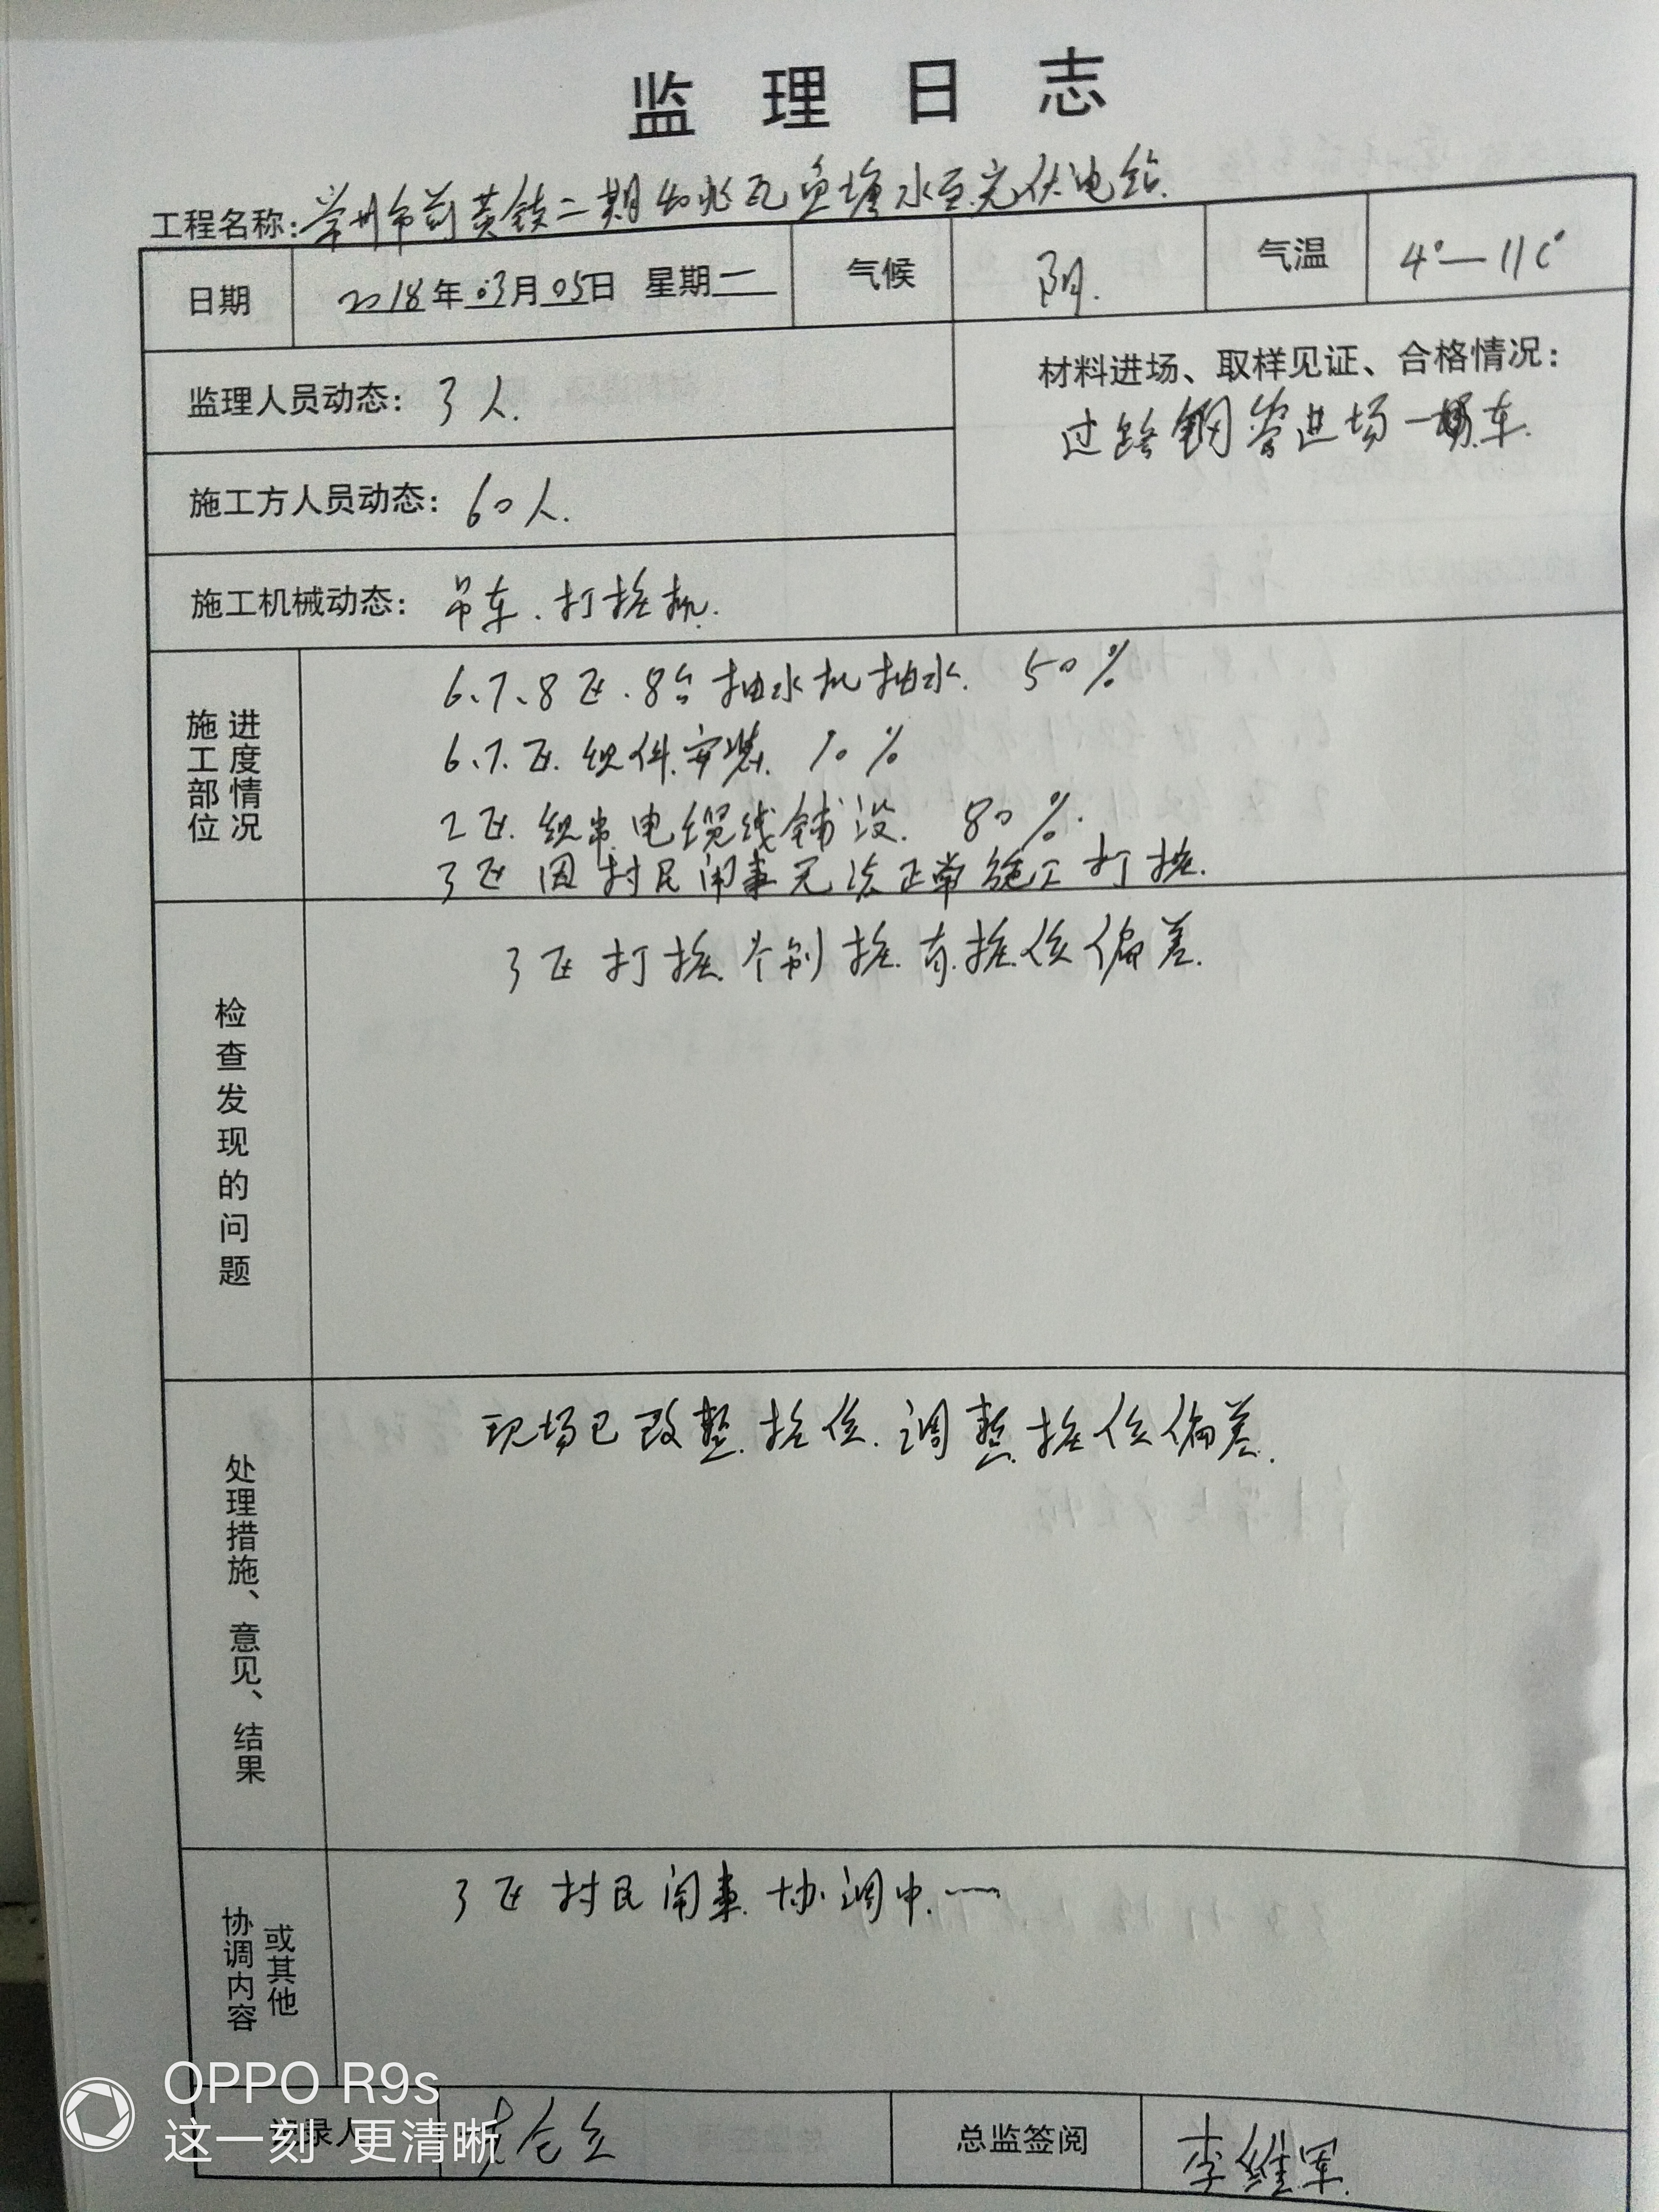 监理日志
工程名称：常州市前黄镇二期40兆瓦鱼塘水面光伏电站
日期 2018年03月05日 星期一 气候 阴. 气温 4°—11C°
监理人员动态：3人.
材料进场、取样见证、合格情况：
过路钢管进场一车.
施工方人员动态：60人.
施工机械动态：吊车.打桩机.
施工部位
进度情况
6、7、8区.8台抽水机抽水. 50%
6.7.区.组件安装. 10%
2区.组串电缆线铺设. 80%.
3区因村民闹事无法正常施工打桩.
检查发现的问题
3区打桩.个别桩.有桩位偏差.
处理措施、意见、结果
现场已改整.桩位.调整桩位偏差.
协调内容
或其他
3区村民闹事.协调中.一
录人
总监签阅 李维军
OPPO R9s
这一刻 更清晰